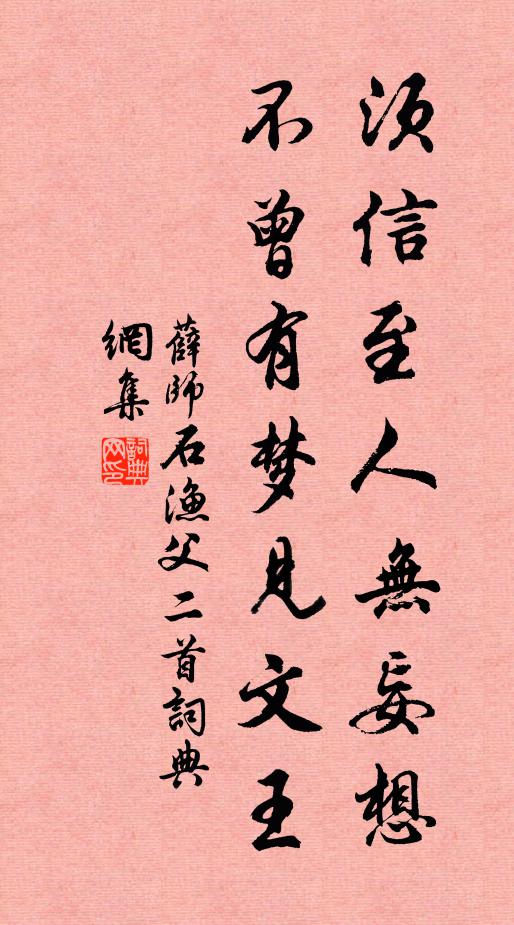 须信至人無妄想
不曾有梦見文王
薛師石漁父二首詞典
網集
詞典
网印